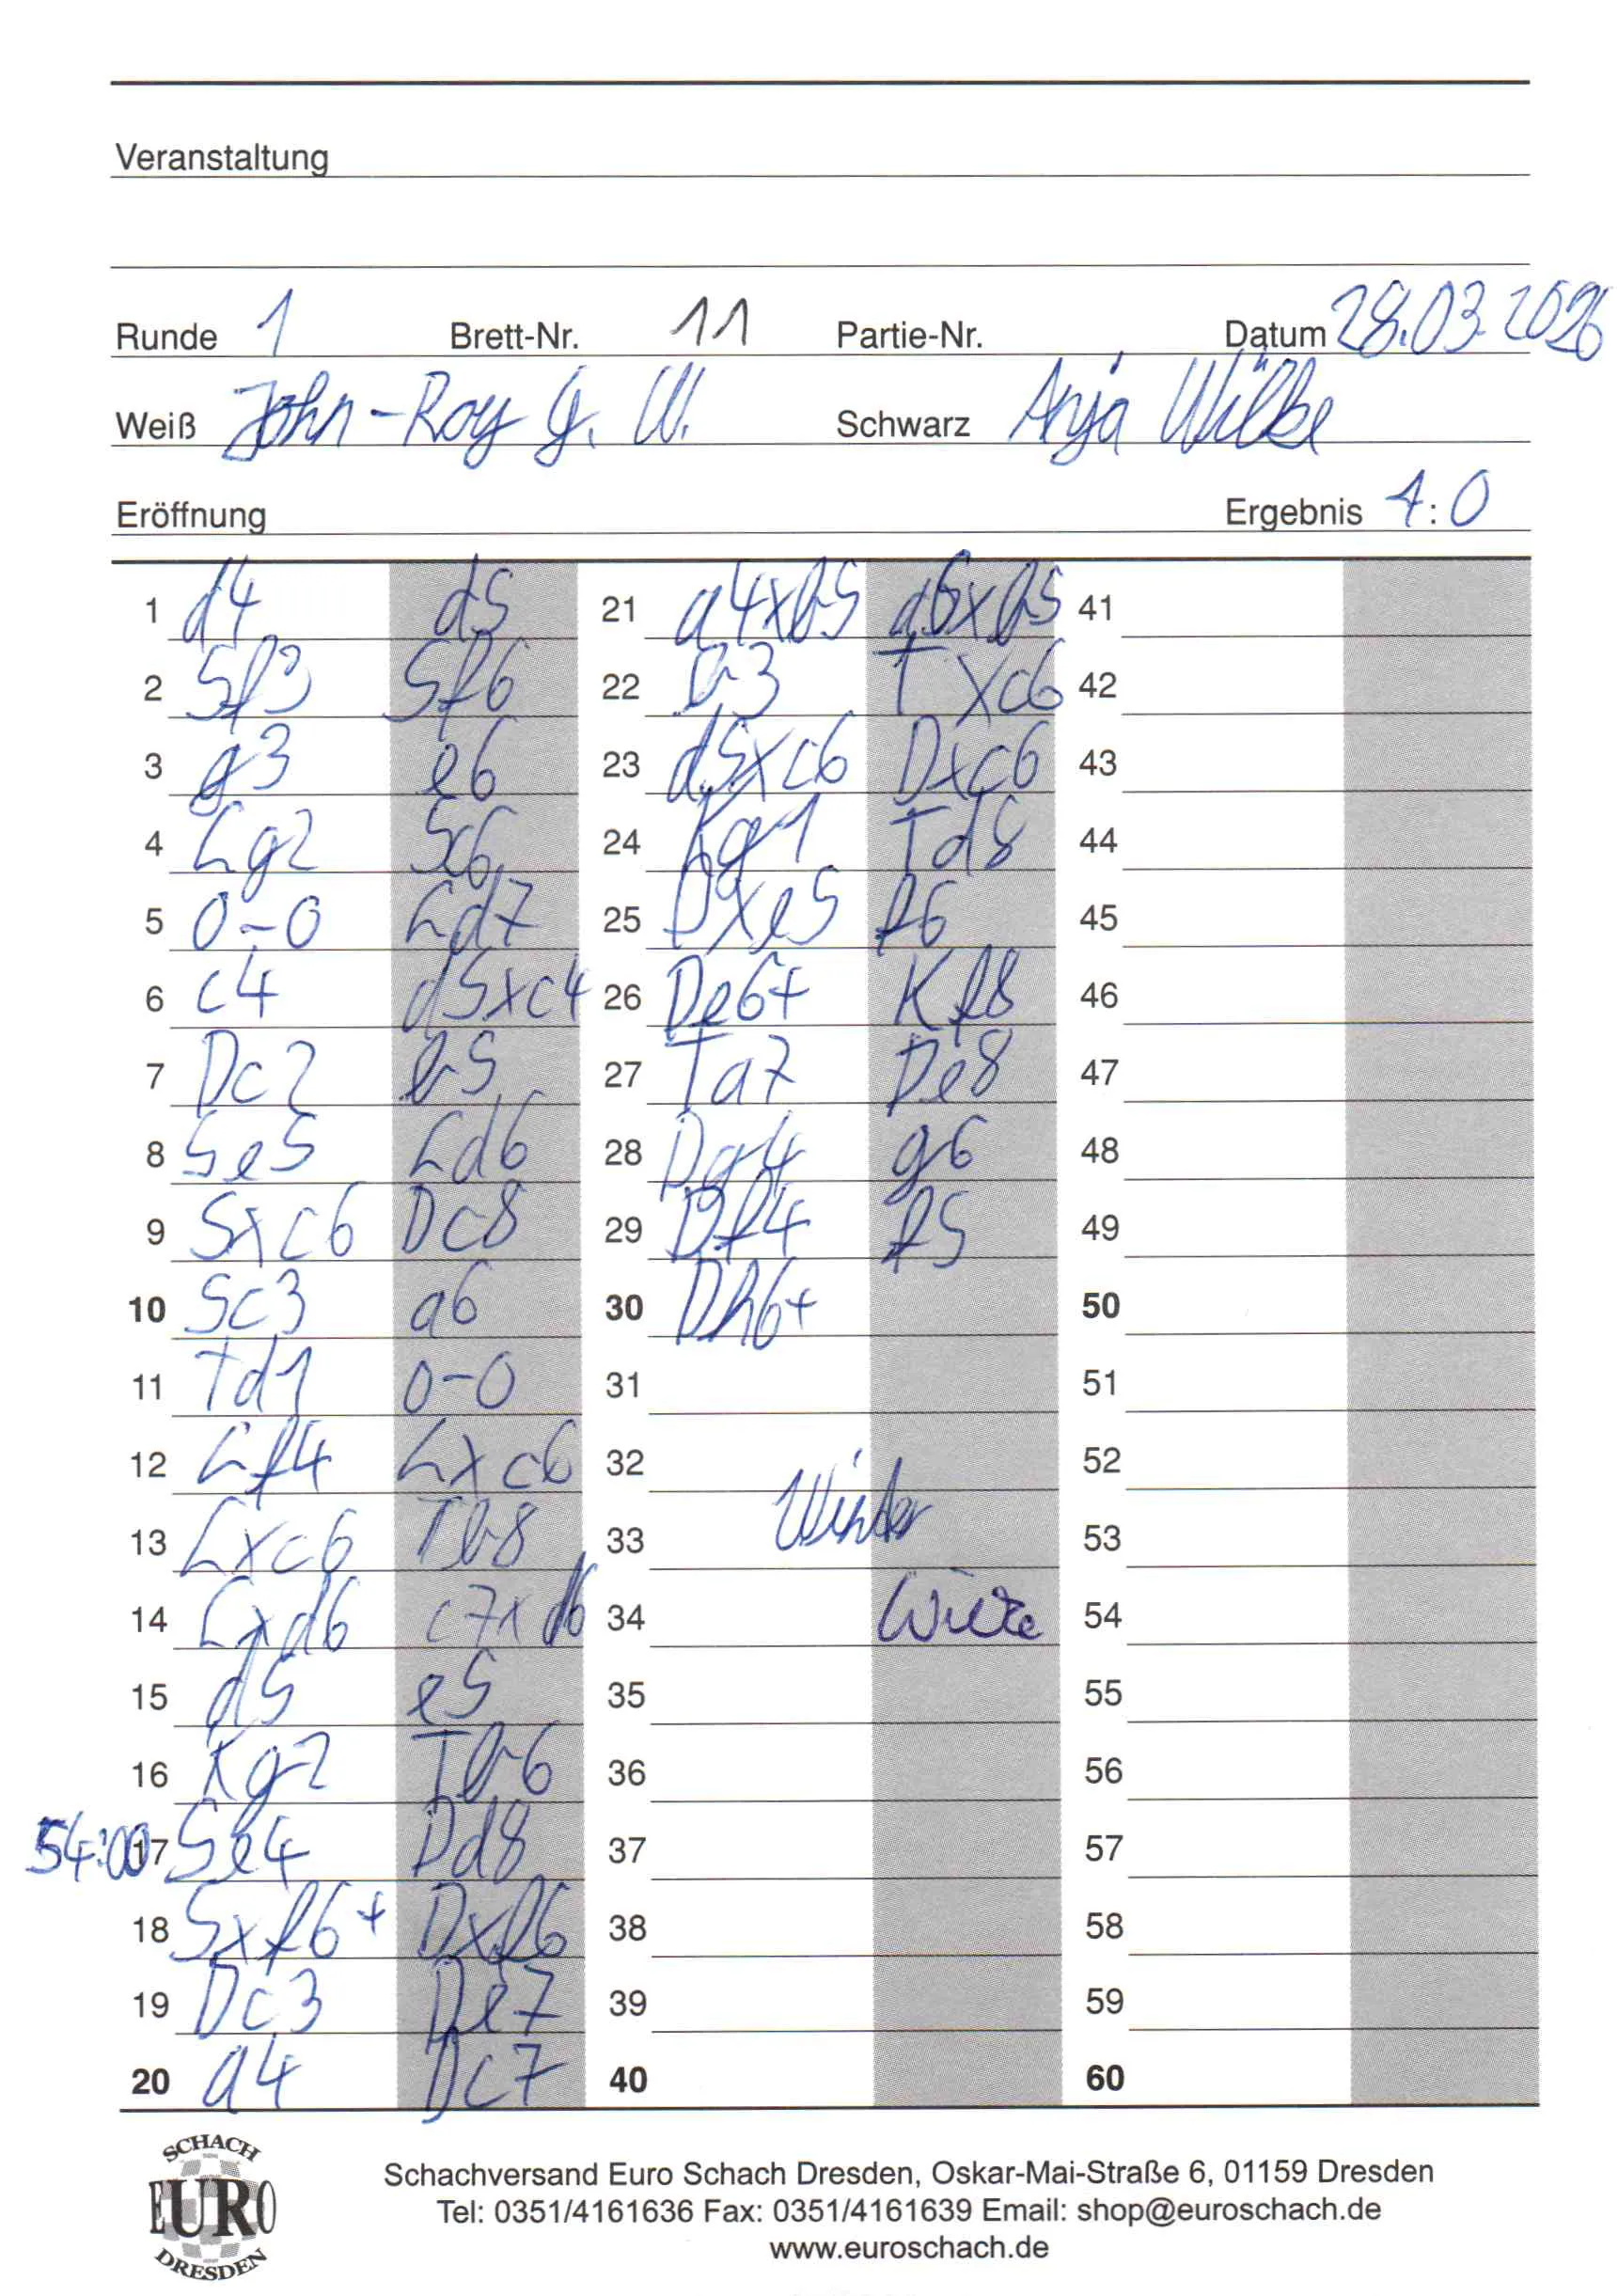 Veranstaltung
Runde 1 Brett-Nr. 11 Partie-Nr. Datum 28.03.2026
Weiß John-Roy G. W. Schwarz Anja Wilke
Eröffnung Ergebnis 1:0
1 d4 d5 21 a4xb5 a6xb5 41
2 Sf3 Sf6 22 b3 Txc6 42
3 g3 e6 23 d5xc6 Dxc6 43
4 Lg2 Sc6 24 Kg1 Td8 44
5 0-0 Ld7 25 Dxe5 f6 45
6 c4 d5xc4 26 De6+ Kf8 46
7 Dc2 b5 27 Ta7 De8 47
8 Se5 Ld6 28 Dg4 g6 48
9 Sxc6 Dc8 29 Df4 f5 49
10 Sc3 a6 30 Dh6+ 50
11 Td1 0-0 31 51
12 Lf4 Lxc6 32 52
13 Lxc6 Tb8 33 Winter 53
14 Lxd6 c7xd6 34 Wilke 54
15 d5 e5 35 55
16 Kg2 Tb6 36 56
54:00 17 Se4 Dd8 37 57
18 Sxf6+ Dxf6 38 58
19 Dc3 De7 39 59
20 a4 Dc7 40 60
SCHACH
EURO
DRESDEN
Schachversand Euro Schach Dresden, Oskar-Mai-Straße 6, 01159 Dresden
Tel: 0351/4161636 Fax: 0351/4161639 Email: shop@euroschach.de
www.euroschach.de